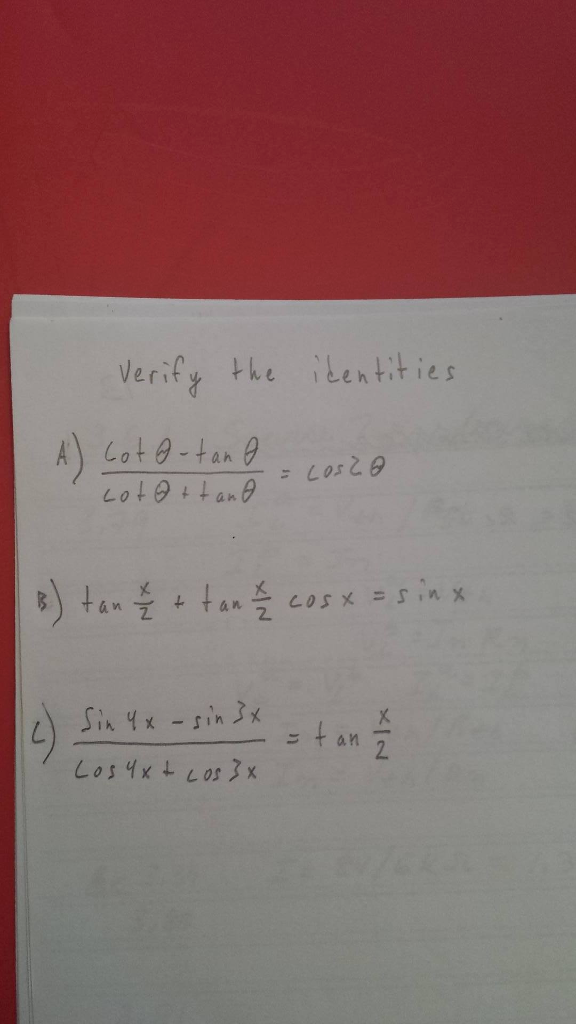 Verify the identities
A) cot θ - tan θ / cot θ + tan θ = cos 2θ
B) tan x/2 + tan x/2 cos x = sin x
C) sin 4x - sin 3x / cos 4x + cos 3x = tan x/2